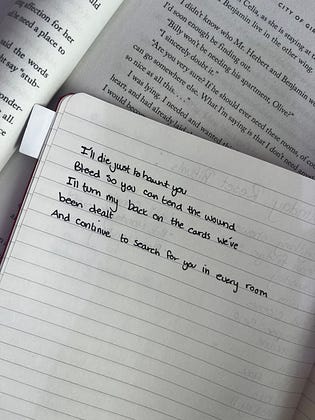 ng affection for her
de need a place to
said the words
t say "stub-
onder-
all.
CITY OF GI
Celia, as she is staying at
I didn't know who Mr. Herbert and Benjamin w
Benjamin live in the other wing.
I'd soon enough be finding out.
"Billy won't be needing his apartment, Olive?"
"I sincerely doubt it."
"Are you very sure? If he should ever need these rooms of co
can go somewhere else. What I'm saying is that I don't need
so nice as all this. . . ."
I was lying. I needed and wanted
heart, and had already
I would
I'll die just to haunt you
Bleed so you can tend the wound
I'll turn my back on the cards we've
been dealt
And continue to search for you in every room